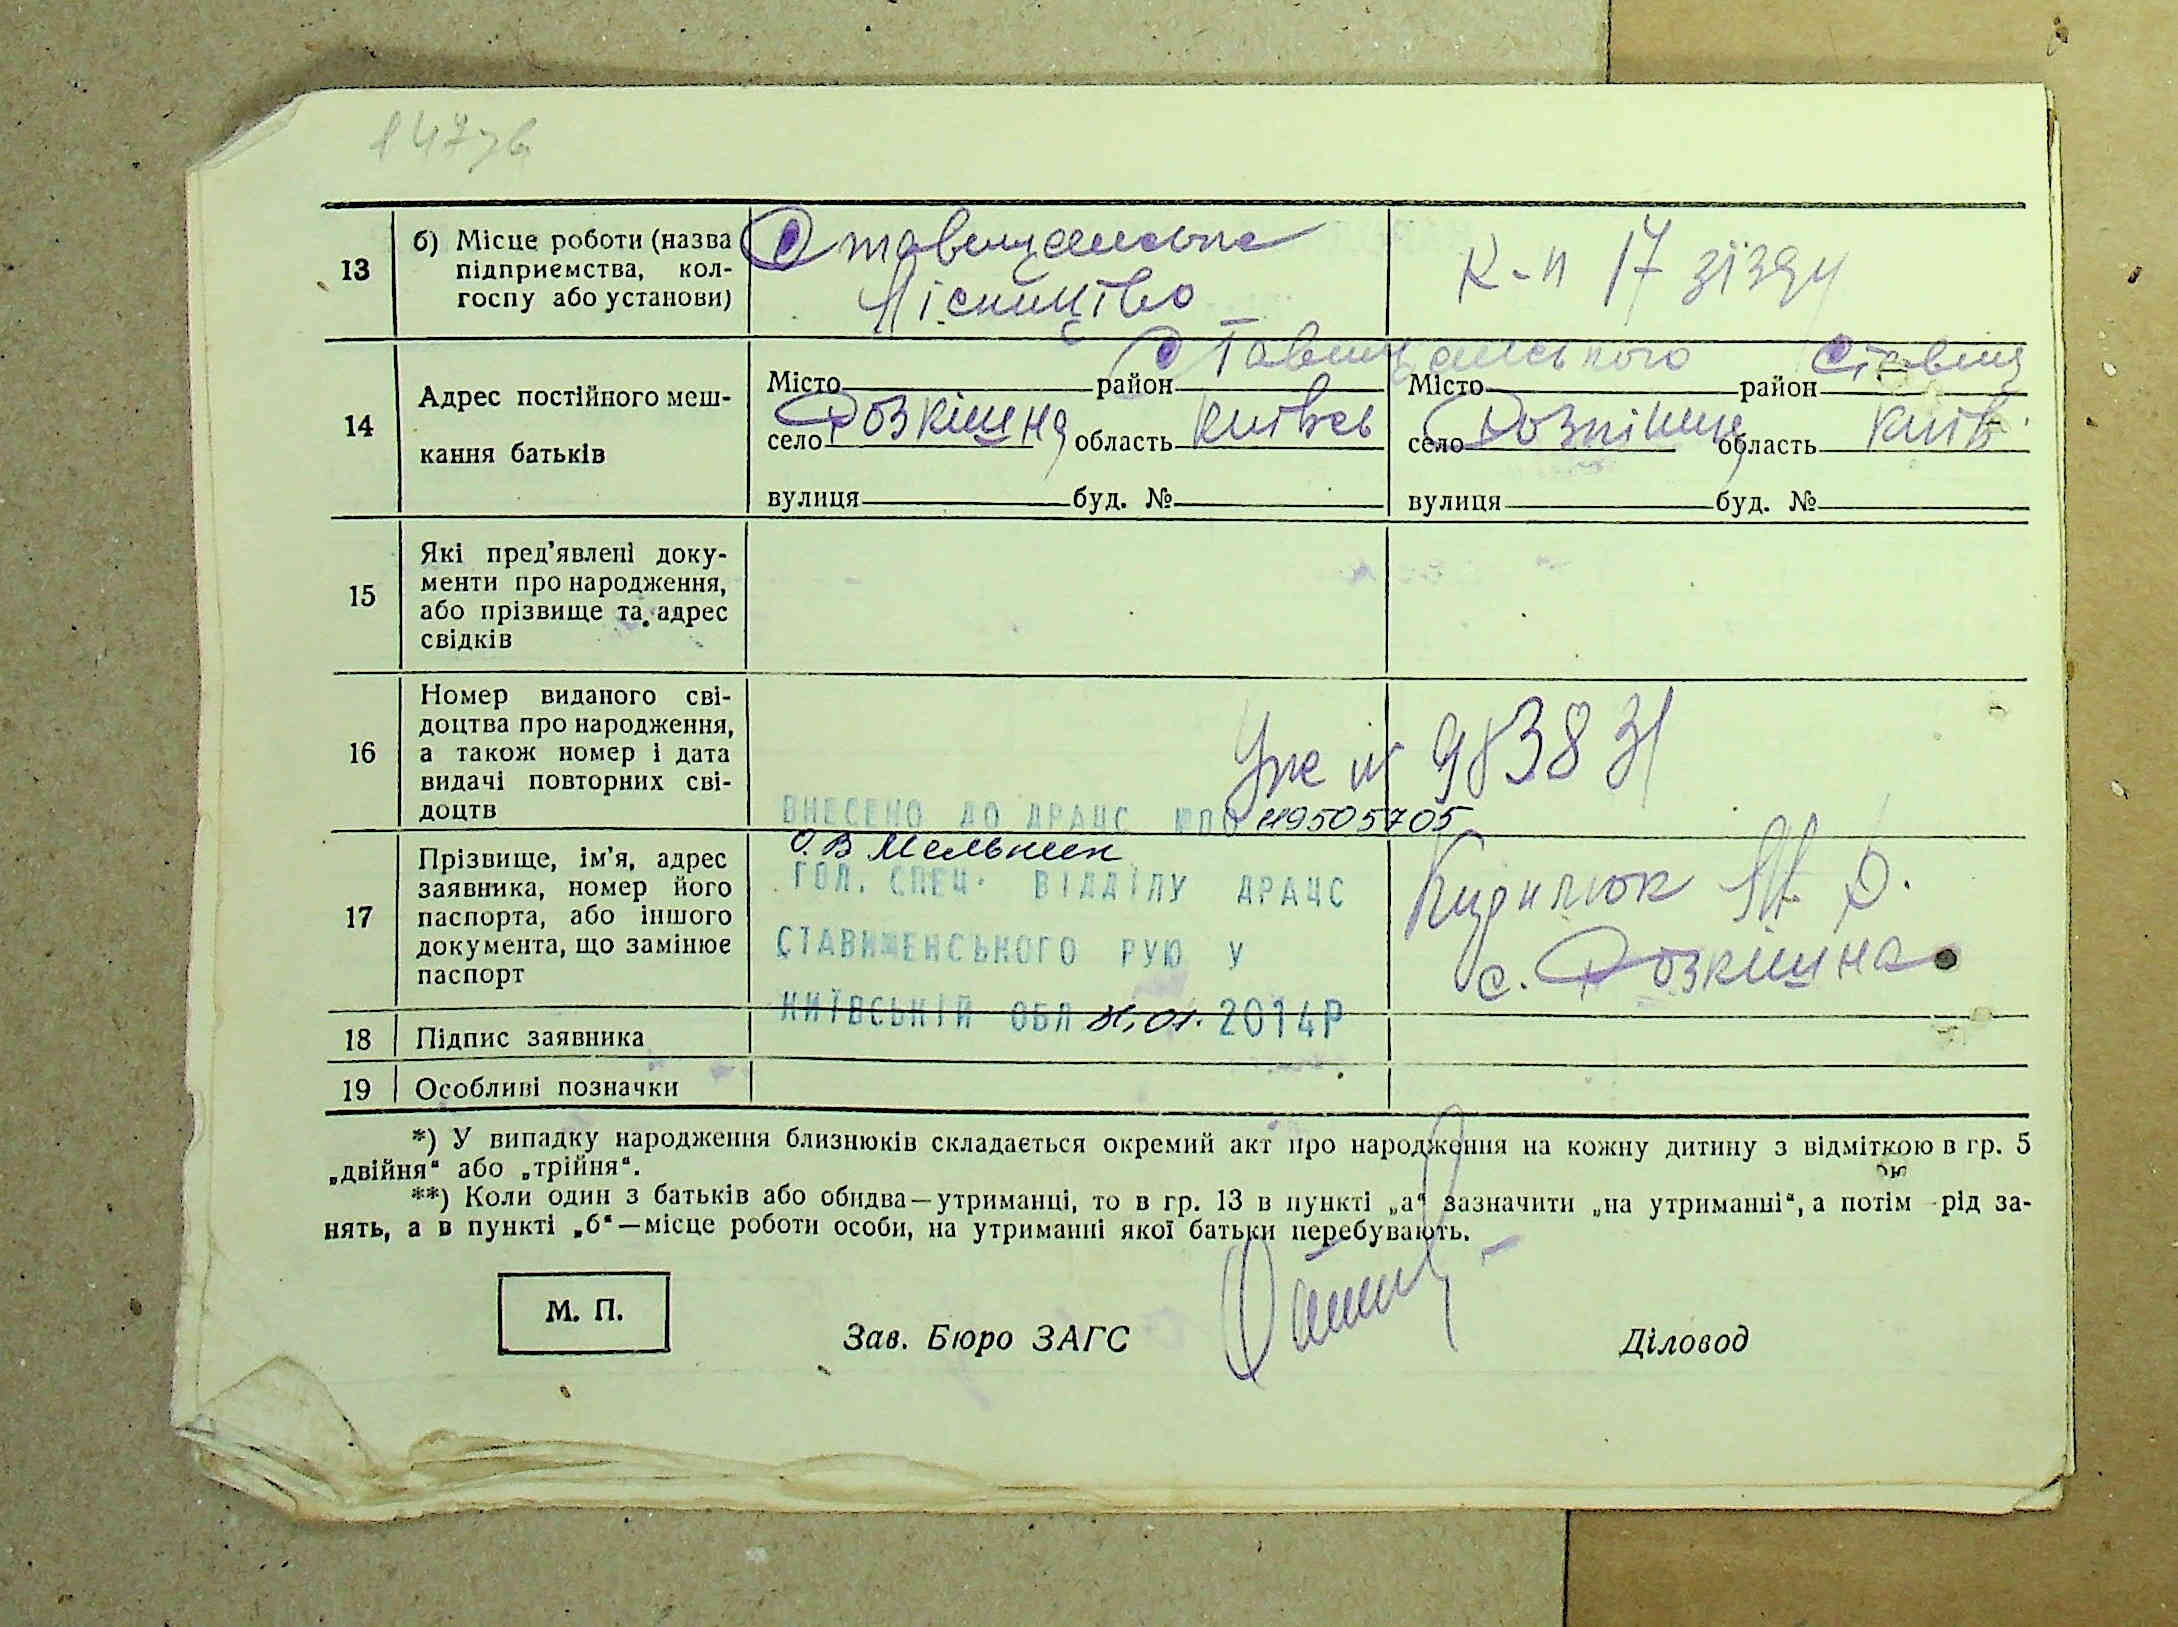 147зв
13
б) Місце роботи (назва
підприємства, кол-
госпу або установи)
Ставищанське
Лісництво
К-п 17 зізду
14
Адрес постійного меш-
кання батьків
Місто район Ставищанського
село Розкішна область Київсь
вулиця буд. №
Місто район Ставищ
село Розкішна область Київ
вулиця буд. №
15
Які пред’явлені доку-
менти про народження,
або прізвище та адрес
свідків
16
Номер виданого сві-
доцтва про народження,
а також номер і дата
видачі повторних сві-
доцтв
983831
ВНЕСЕНО ДО ДРАЦС 49505705
О.В Мельник
ГОЛ. СПЕЦ. ВІДДІЛУ ДРАЦС
СТАВИЩЕНСЬКОГО РУЮ У
КИЇВСЬКІЙ ОБЛ 31.01. 2014Р
17
Прізвище, ім’я, адрес
заявника, номер його
паспорта, або іншого
документа, що замінює
паспорт
с. Розкішна
18
Підпис заявника
19
Особливі позначки
*) У випадку народження близнюків складається окремий акт про народження на кожну дитину з відміткою в гр. 5
„двійня“ або „трійня“.
**) Коли один з батьків або обидва—утриманці, то в гр. 13 в пункті „а“ зазначити „на утриманні“, а потім рід за-
нять, а в пункті „б“—місце роботи особи, на утриманні якої батьки перебувають.
М. П.
Зав. Бюро ЗАГС
Діловод